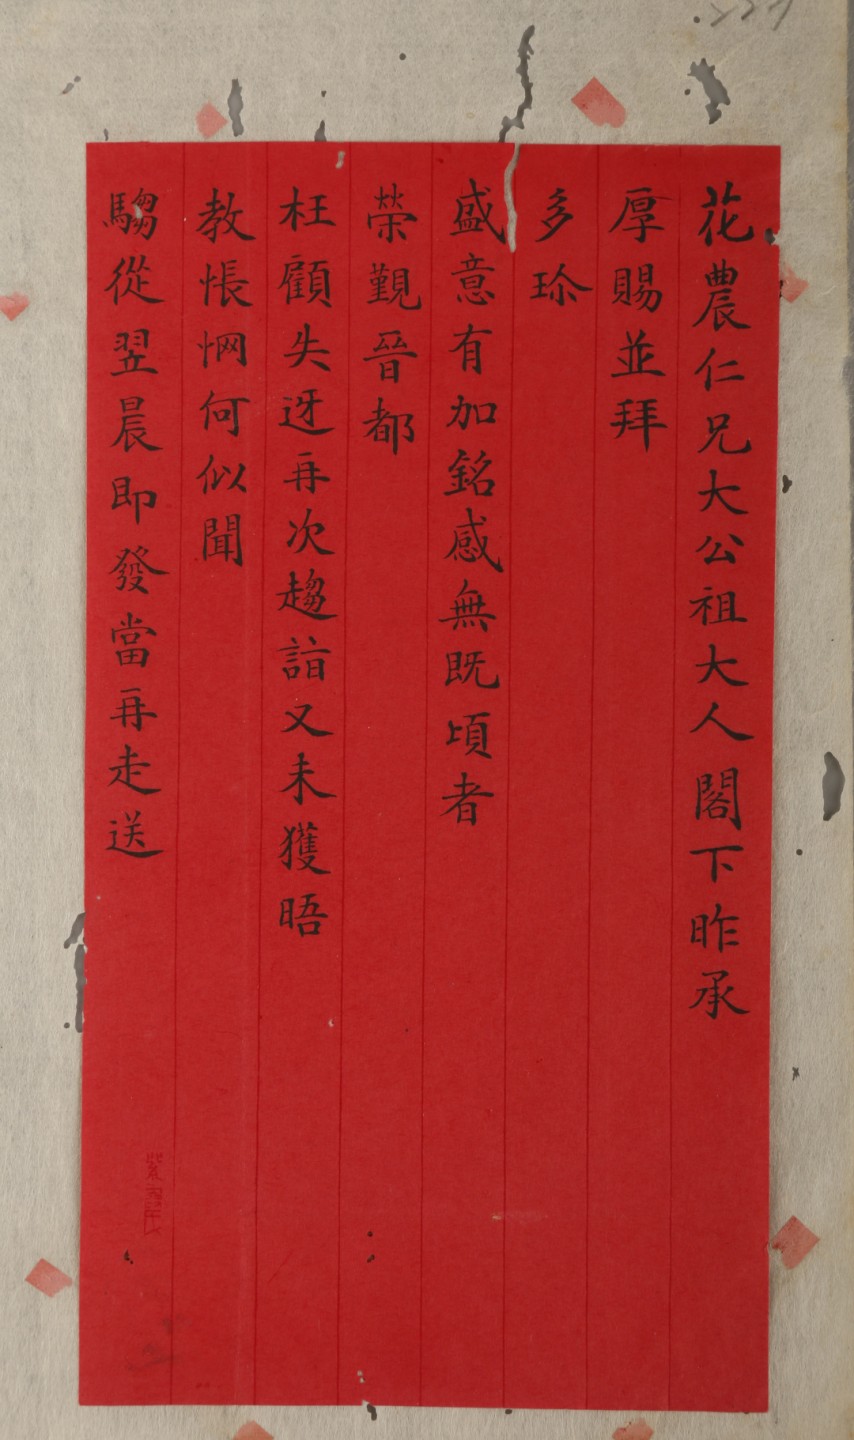 花農仁兄大公祖大人閣下昨承
厚賜並拜
多珍
盛意有加銘感無既頃者
榮覲晉都
枉顧失迓再次趨詣又未獲晤
教悵惘何似聞
騶從翌晨即發當再走送